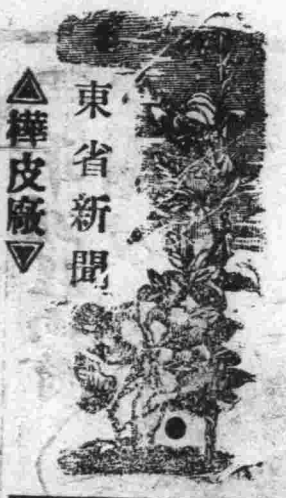 東省新聞
▲樺皮廠▼